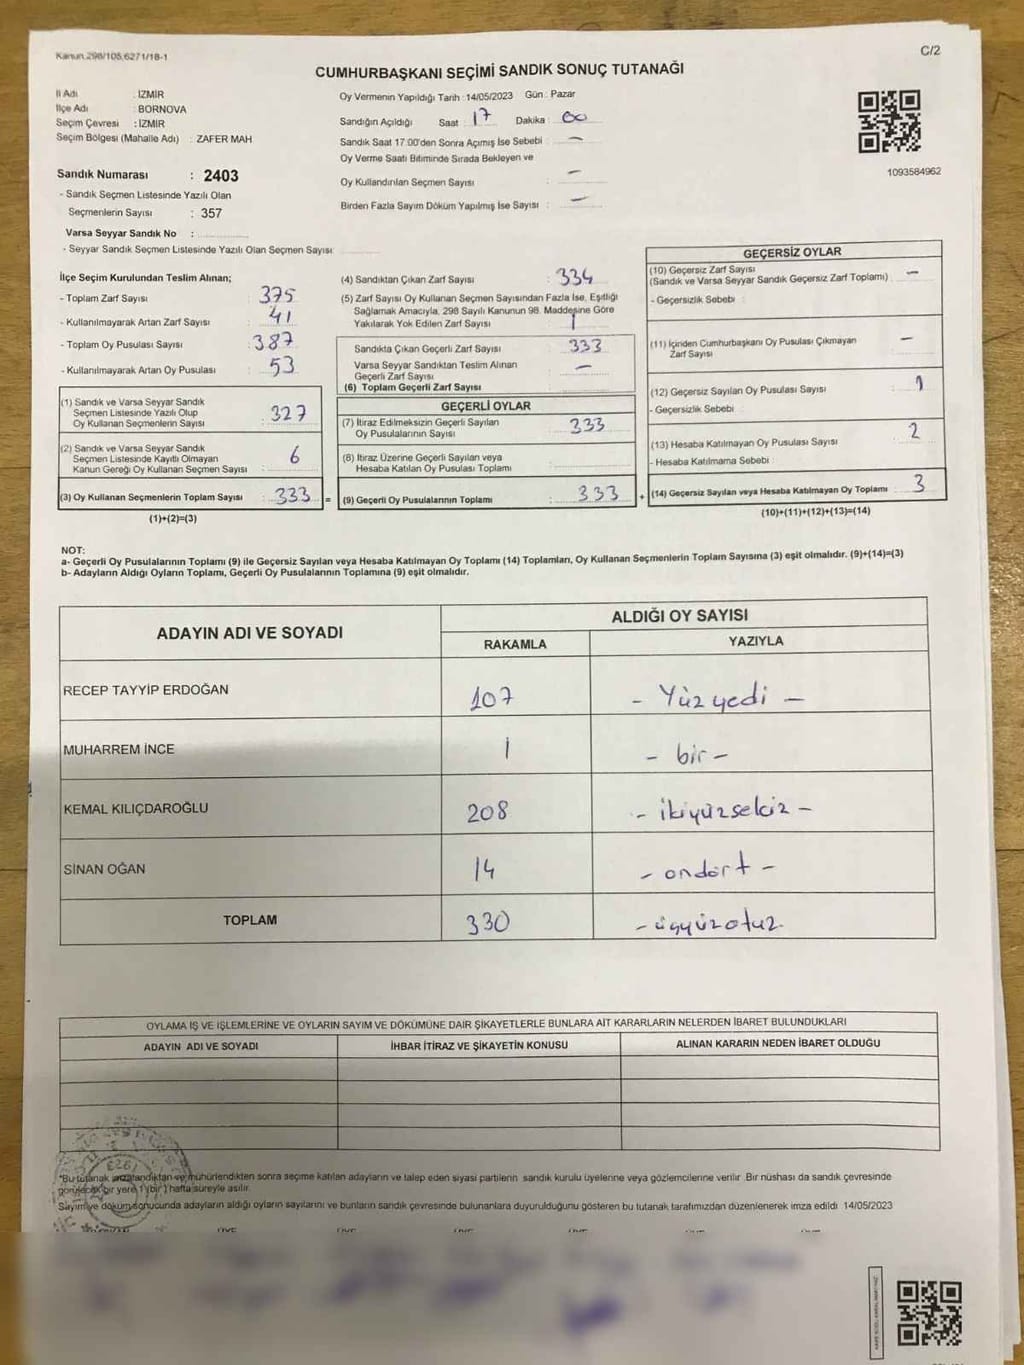 Kanun.298/105,6271/18-1
C/2
CUMHURBAŞKANI SEÇİMİ SANDIK SONUÇ TUTANAĞI
İl Adı : İZMİR
İlçe Adı : BORNOVA
Seçim Çevresi : İZMİR
Seçim Bölgesi (Mahalle Adı) : ZAFER MAH
Oy Vermenin Yapıldığı Tarih : 14/05/2023 Gün : Pazar
Sandığın Açıldığı Saat : 17 Dakika : 00
Sandık Saat 17.00'den Sonra Açımış İse Sebebi : -
Oy Verme Saati Bitiminde Sırada Bekleyen ve
Oy Kullandırılan Seçmen Sayısı : -
Birden Fazla Sayım Döküm Yapılmış İse Sayısı : -
1093584962
Sandık Numarası : 2403
- Sandık Seçmen Listesinde Yazılı Olan
Seçmenlerin Sayısı : 357
Varsa Seyyar Sandık No :
- Seyyar Sandık Seçmen Listesinde Yazılı Olan Seçmen Sayısı:
İlçe Seçim Kurulundan Teslim Alınan;
- Toplam Zarf Sayısı : 375
- Kullanılmayarak Artan Zarf Sayısı : 41
- Toplam Oy Pusulası Sayısı : 387
- Kullanılmayarak Artan Oy Pusulası : 53
(1) Sandık ve Varsa Seyyar Sandık
Seçmen Listesinde Yazılı Olup
Oy Kullanan Seçmenlerin Sayısı : 327
(2) Sandık ve Varsa Seyyar Sandık
Seçmen Listesinde Kayıtlı Olmayan
Kanun Gereği Oy Kullanan Seçmen Sayısı : 6
(3) Oy Kullanan Seçmenlerin Toplam Sayısı : 333 =
(1)+(2)=(3)
(4) Sandıktan Çıkan Zarf Sayısı : 334
(5) Zarf Sayısı Oy Kullanan Seçmen Sayısından Fazla İse, Eşitliği
Sağlamak Amacıyla, 298 Sayılı Kanunun 98. Maddesine Göre
Yakılarak Yok Edilen Zarf Sayısı : 1
Sandıkta Çıkan Geçerli Zarf Sayısı : 333
Varsa Seyyar Sandıktan Teslim Alınan
Geçerli Zarf Sayısı : -
(6) Toplam Geçerli Zarf Sayısı
GEÇERLİ OYLAR
(7) İtiraz Edilmeksizin Geçerli Sayılan
Oy Pusulalarının Sayısı : 333
(8) İtiraz Üzerine Geçerli Sayılan veya
Hesaba Katılan Oy Pusulası Toplamı :
(9) Geçerli Oy Pusulalarının Toplamı : 333 +
GEÇERSİZ OYLAR
(10) Geçersiz Zarf Sayısı
(Sandık ve Varsa Seyyar Sandık Geçersiz Zarf Toplamı) : -
- Geçersizlik Sebebi :
(11) İçinden Cumhurbaşkanı Oy Pusulası Çıkmayan
Zarf Sayısı : -
(12) Geçersiz Sayılan Oy Pusulası Sayısı : 1
- Geçersizlik Sebebi :
(13) Hesaba Katılmayan Oy Pusulası Sayısı : 2
- Hesaba Katılmama Sebebi :
(14) Geçersiz Sayılan veya Hesaba Katılmayan Oy Toplamı : 3
(10)+(11)+(12)+(13)=(14)
NOT:
a- Geçerli Oy Pusulalarının Toplamı (9) ile Geçersiz Sayılan veya Hesaba Katılmayan Oy Toplamı (14) Toplamları, Oy Kullanan Seçmenlerin Toplam Sayısına (3) eşit olmalıdır. (9)+(14)=(3)
b- Adayların Aldığı Oyların Toplamı, Geçerli Oy Pusulalarının Toplamına (9) eşit olmalıdır.
ADAYIN ADI VE SOYADI
ALDIĞI OY SAYISI
RAKAMLA YAZIYLA
RECEP TAYYİP ERDOĞAN 107 - Yüz yedi -
MUHARREM İNCE 1 - bir -
KEMAL KILIÇDAROĞLU 208 - ikiyüzsekiz -
SİNAN OĞAN 14 - ondört -
TOPLAM 330 - üçyüzotuz
OYLAMA İŞ VE İŞLEMLERİNE VE OYLARIN SAYIM VE DÖKÜMÜNE DAİR ŞİKAYETLERLE BUNLARA AİT KARARLARIN NELERDEN İBARET BULUNDUKLARI
ADAYIN ADI VE SOYADI İHBAR İTİRAZ VE ŞİKAYETİN KONUSU ALINAN KARARIN NEDEN İBARET OLDUĞU
*Bu tutanak imzalandıktan ve mühürlendikten sonra seçime katılan adayların ve talep eden siyasi partilerin sandık kurulu üyelerine veya gözlemcilerine verilir .Bir nüshası da sandık çevresinde
görülecek bir yere 1 (bir ) hafta süreyle asılır.
Sayım ve döküm sonucunda adayların aldığı oyların sayılarını ve bunların sandık çevresinde bulunanlara duyurulduğunu gösteren bu tutanak tarafımızdan düzenlenerek imza edildi 14/05/2023